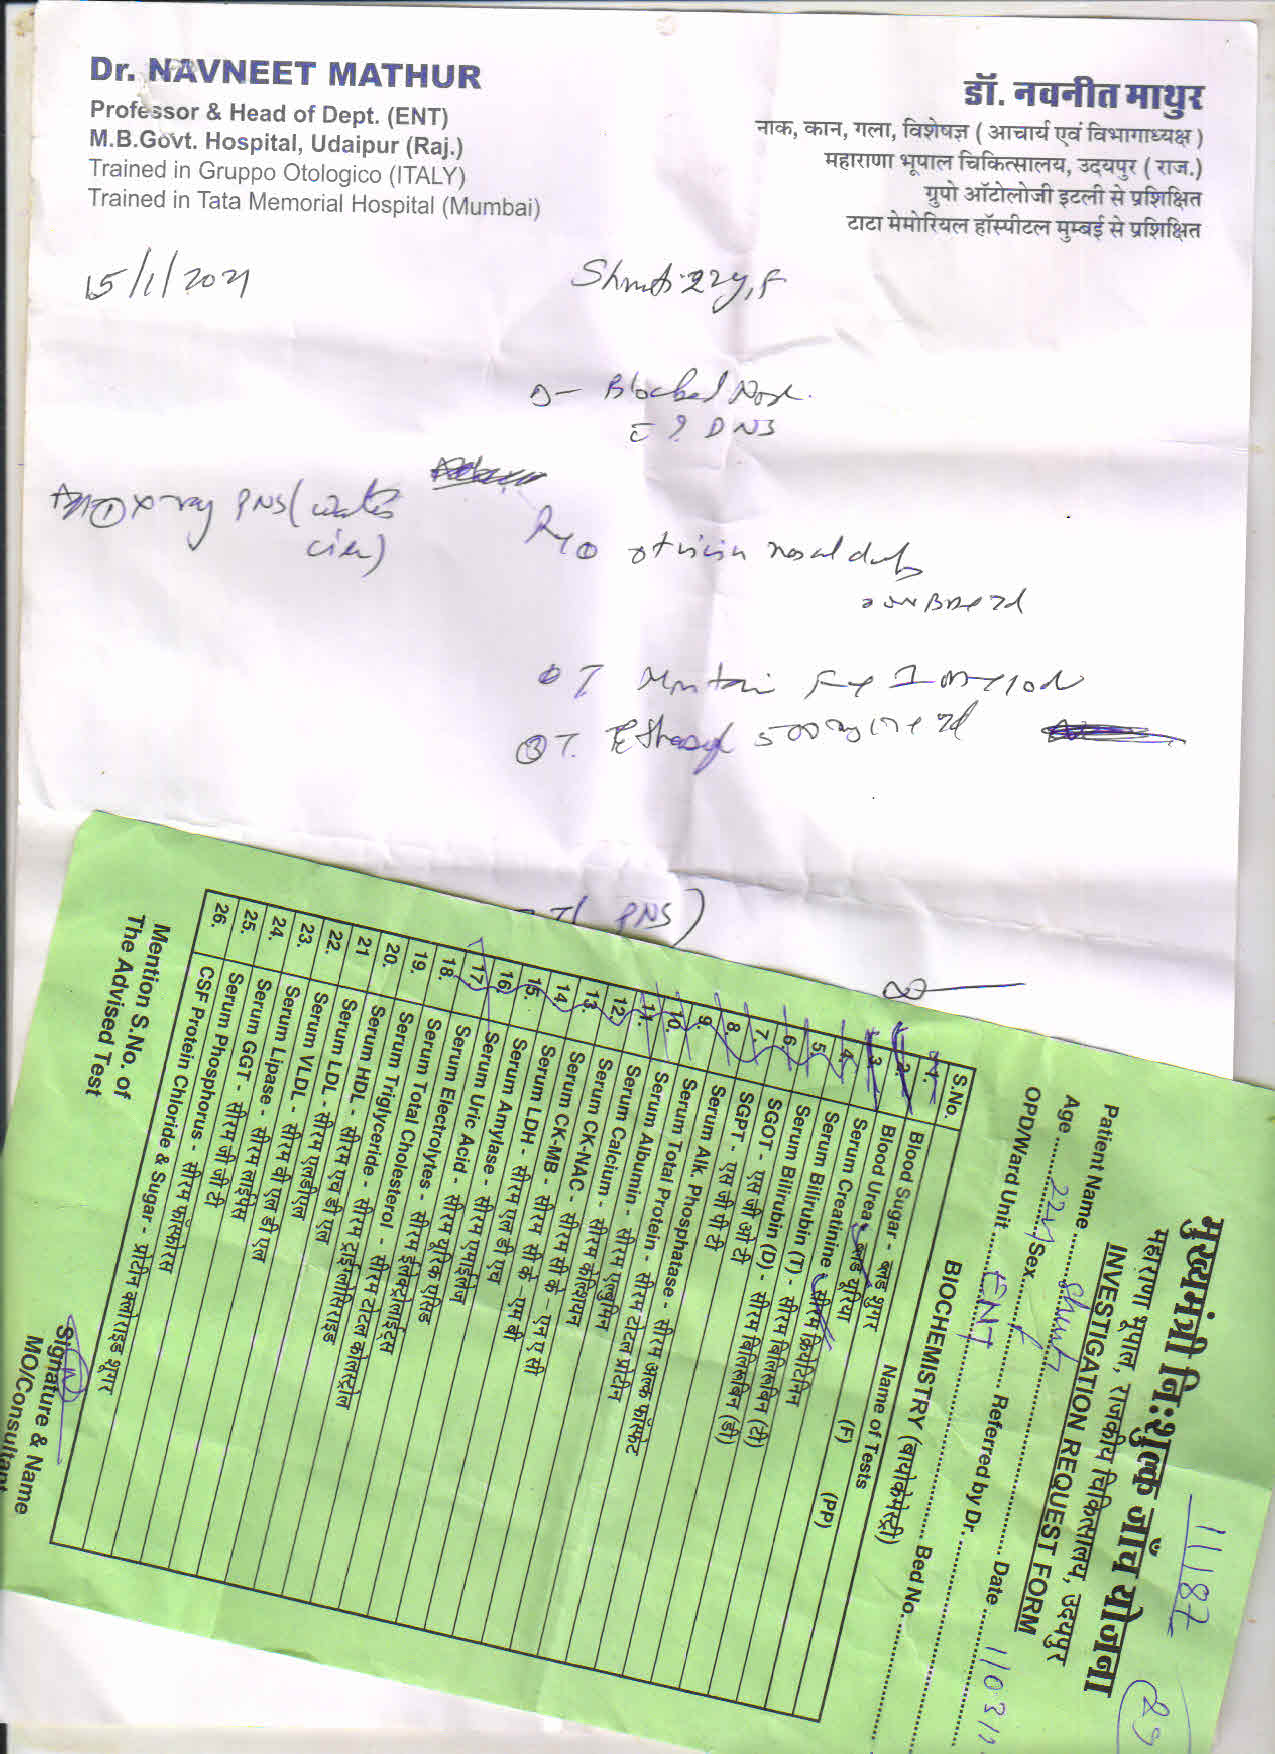 Dr. NAVNEET MATHUR
Professor & Head of Dept. (ENT)
M.B.Govt. Hospital, Udaipur (Raj.)
Trained in Gruppo Otologico (ITALY)
Trained in Tata Memorial Hospital (Mumbai)
डॉ. नवनीत माथुर
नाक, कान, गला, विशेषज्ञ ( आचार्य एवं विभागाध्यक्ष )
महाराणा भूपाल चिकित्सालय, उदयपुर ( राज.)
ग्रुपो ऑटोलोजी इटली से प्रशिक्षित
टाटा मेमोरियल हॉस्पीटल मुम्बई से प्रशिक्षित
15/1/2021
22y, F
Blocked Nose
? DNS
① X-ray PNS (
view)
① nasal drops
T
③ T. 500mg
PNS)
11187
मुख्यमंत्री निःशुल्क जाँच योजना
महाराणा भूपाल, राजकीय चिकित्सालय, उदयपुर
INVESTIGATION REQUEST FORM
Patient Name
Age 22y Sex f Date
OPD/Ward Unit ENT Referred by Dr. Bed No.
BIOCHEMISTRY (बायोकेमेस्ट्री)
S.No. Name of Tests
1. Blood Sugar - ब्लड शुगर (F) (PP)
2. Blood Urea - ब्लड यूरिया
3. Serum Creatinine - सीरम क्रियेटिनिन
4. Serum Bilirubin (T) - सीरम बिलिरूबिन (टी)
5. Serum Bilirubin (D) - सीरम बिलिरूबिन (डी)
6. SGOT - एस जी ओ टी
7. SGPT - एस जी पी टी
8. Serum Alk. Phosphatase - सीरम अल्क फॉस्फेट
9. Serum Total Protein - सीरम टोटल प्रोटीन
10. Serum Albumin - सीरम एल्बुमिन
11. Serum Calcium - सीरम कैल्शियम
12. Serum CK-NAC - सीरम सी के - एन ए सी
13. Serum CK-MB - सीरम सी के - एम बी
14. Serum LDH - सीरम एल डी एच
15. Serum Amylase - सीरम एमाईलेज
16. Serum Uric Acid - सीरम यूरिक एसिड
17. Serum Electrolytes - सीरम इलेक्ट्रोलाईट्स
18. Serum Total Cholesterol - सीरम टोटल कोलस्ट्रोल
19. Serum Triglyceride - सीरम ट्राईग्लीसिराइड
20. Serum HDL - सीरम एच डी एल
21 Serum LDL - सीरम एल डी एल
22. Serum VLDL - सीरम वी एल डी एल
23. Serum Lipase - सीरम लाईपेस
24. Serum GGT - सीरम जी जी टी
25. Serum Phosphorus - सीरम फॉस्फोरस
26. CSF Protein Chloride & Sugar - प्रोटीन क्लोराइड शुगर
Mention S.No. of
The Advised Test
Signature & Name
MO/Consultant